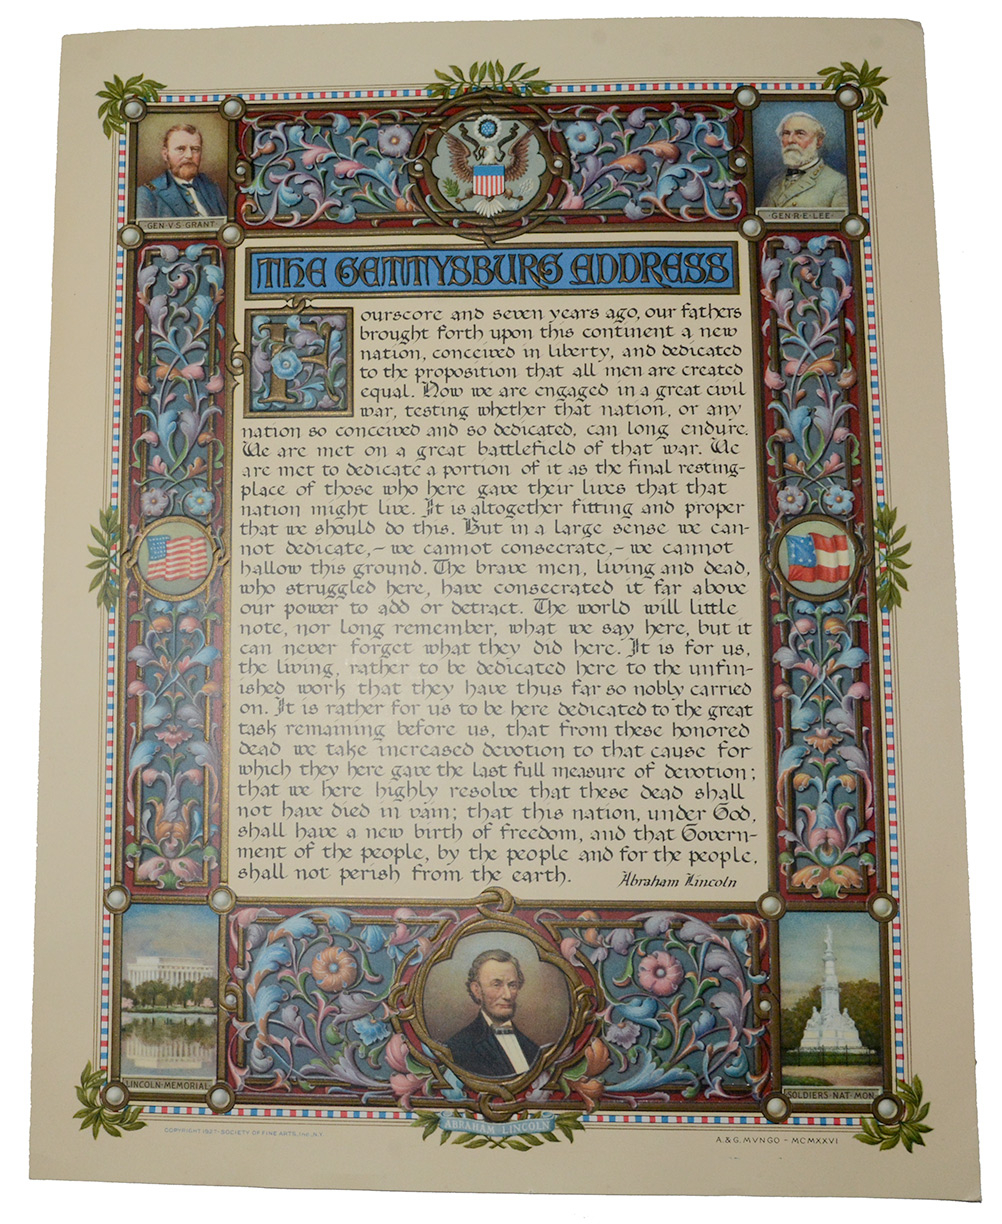 GEN·V·S·GRANT
GEN·R·E·LEE·
THE GETTYSBURG ADDRESS
Fourscore and seven years ago, our fathers
brought forth upon this continent a new
nation, conceived in liberty, and dedicated
to the proposition that all men are created
equal. Now we are engaged in a great civil
war, testing whether that nation, or any
nation so conceived and so dedicated, can long endure.
We are met on a great battlefield of that war. We
are met to dedicate a portion of it as the final resting-
place of those who here gave their lives that that
nation might live. It is altogether fitting and proper
that we should do this. But in a large sense we can-
not dedicate,– we cannot consecrate,– we cannot
hallow this ground. The brave men, living and dead,
who struggled here, have consecrated it far above
our power to add or detract. The world will little
note, nor long remember, what we say here, but it
can never forget what they did here. It is for us,
the living, rather to be dedicated here to the unfin-
ished work that they have thus far so nobly carried
on. It is rather for us to be here dedicated to the great
task remaining before us, that from these honored
dead we take increased devotion to that cause for
which they here gave the last full measure of devotion;
that we here highly resolve that these dead shall
not have died in vain; that this nation, under God,
shall have a new birth of freedom, and that Govern-
ment of the people, by the people and for the people,
shall not perish from the earth.
Abraham Lincoln
LINCOLN·MEMORIAL
SOLDIERS·NAT·MON.
ABRAHAM LINCOLN
COPYRIGHT 1927-SOCIETY OF FINE ARTS, INC. N.Y.
A.&G.MVNGO - MCMXXVI